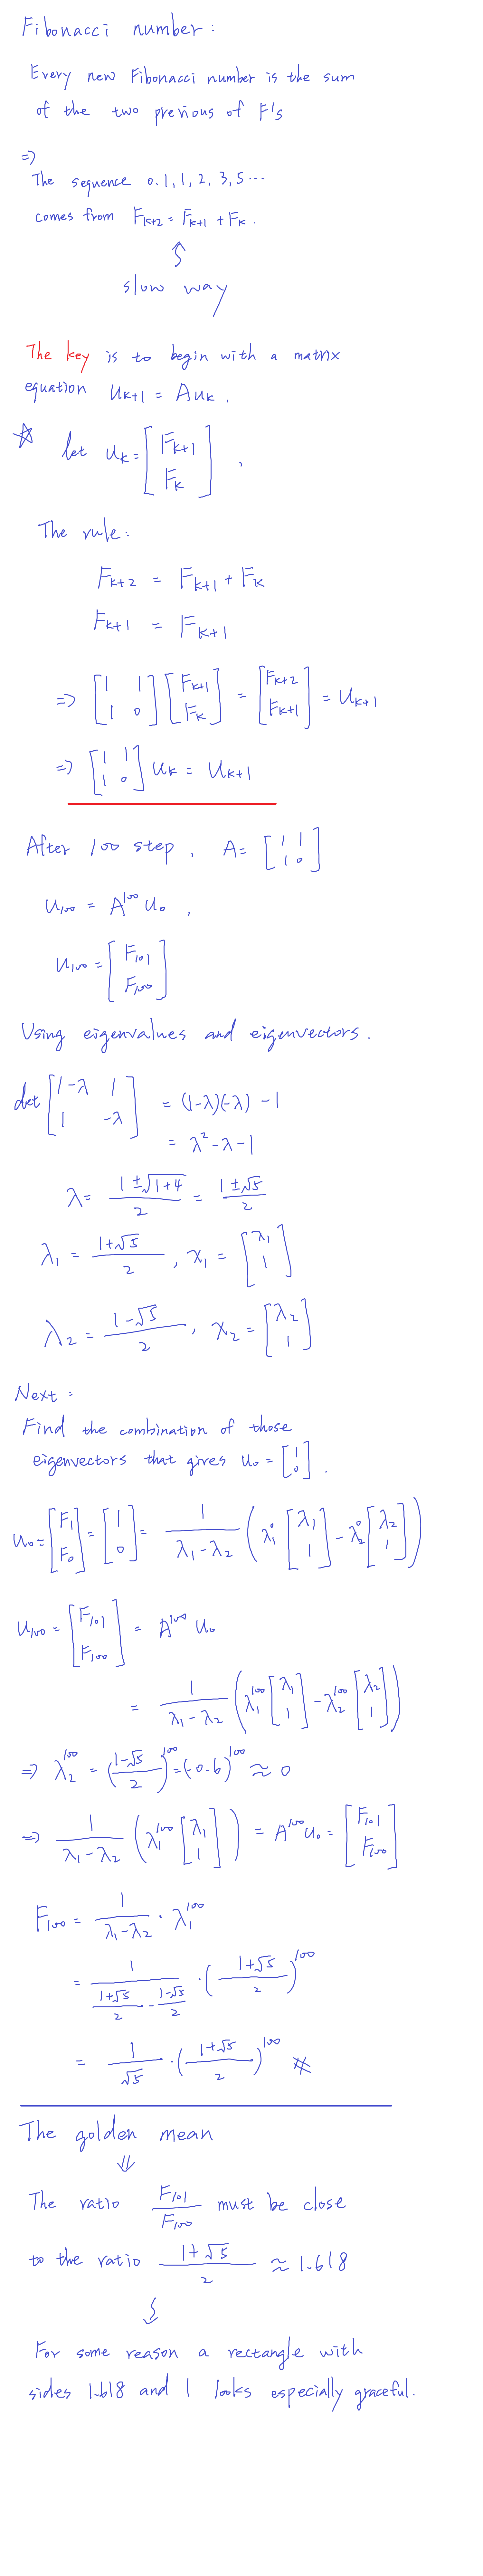 Fibonacci number:
Every new Fibonacci number is the sum
of the two previous of F's
⇒
The sequence 0,1,1,2,3,5...
comes from F_{k+2} = F_{k+1} + F_k.
↑
slow way
The key is to begin with a matrix
equation U_{k+1} = A u_k.
☆ let u_k = [F_{k+1}; F_k],
The rule:
F_{k+2} = F_{k+1} + F_k
F_{k+1} = F_{k+1}
⇒ [1 1; 1 0] [F_{k+1}; F_k] = [F_{k+2}; F_{k+1}] = U_{k+1}
⇒ [1 1; 1 0] U_k = U_{k+1}
After 100 step, A = [1 1; 1 0]
U_{100} = A^{100} U_0,
U_{100} = [F_{101}; F_{100}]
Using eigenvalues and eigenvectors.
det [1-λ 1; 1 -λ] = (1-λ)(-λ) - 1
= λ^2 - λ - 1
λ = (1±√(1+4))/2 = (1±√5)/2
λ_1 = (1+√5)/2, x_1 = [λ_1; 1]
λ_2 = (1-√5)/2, x_2 = [λ_2; 1]
Next:
Find the combination of those
eigenvectors that gives U_0 = [1; 0].
U_0 = [F_1; F_0] = [1; 0] = 1/(λ_1-λ_2) (λ_1^0 [λ_1; 1] - λ_2^0 [λ_2; 1])
U_{100} = [F_{101}; F_{100}] = A^{100} U_0
= 1/(λ_1-λ_2) (λ_1^{100} [λ_1; 1] - λ_2^{100} [λ_2; 1])
⇒ λ_2^{100} = ((1-√5)/2)^{100} = (-0.6)^{100} ≈ 0
⇒ 1/(λ_1-λ_2) (λ_1^{100} [λ_1; 1]) = A^{100} U_0 = [F_{101}; F_{100}]
F_{100} = 1/(λ_1-λ_2) · λ_1^{100}
= 1/((1+√5)/2 - (1-√5)/2) · ((1+√5)/2)^{100}
= 1/√5 · ((1+√5)/2)^{100} ※
The golden mean
⇓
The ratio F_{101}/F_{100} must be close
to the ratio (1+√5)/2 ≈ 1.618
↓
For some reason a rectangle with
sides 1.618 and 1 looks especially graceful.